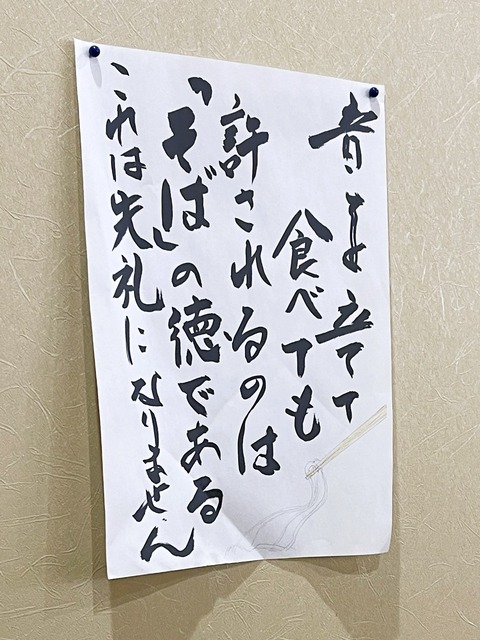 音を立てて
食べても
許されるのは
「そば」の徳である
これは失礼になりません